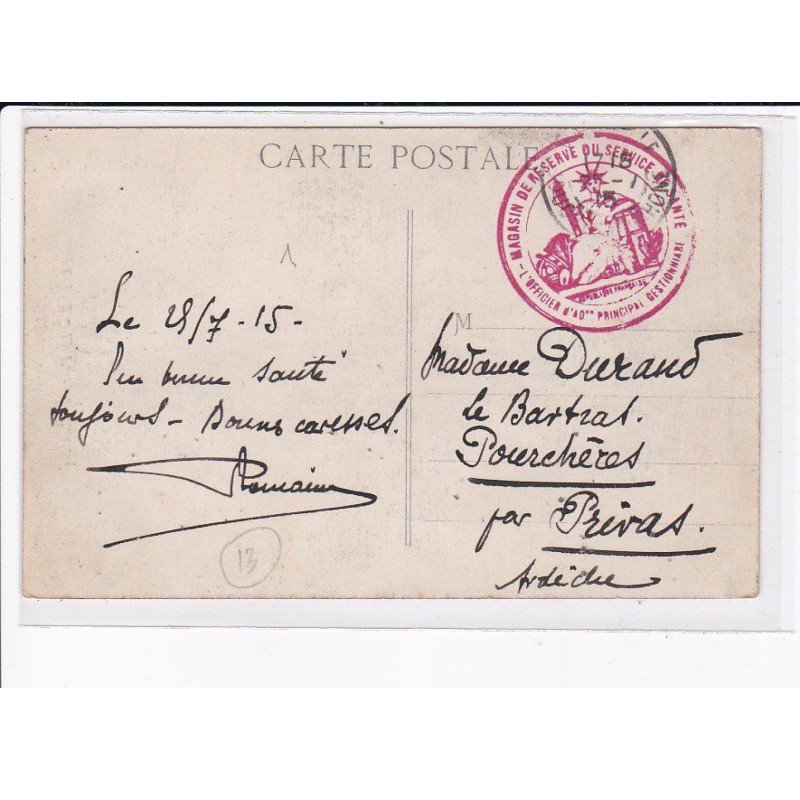 CARTE POSTALE
MAGASIN DE RÉSERVE DU SERVICE DE SANTÉ
- L'OFFICIER D'ADON PRINCIPAL GESTIONNAIRE
RÉPUBLIQUE FRANÇAISE
1
Le 28/7-15-
En bonne santé
toujours - Bonnes caresses.
Romain
13
M
Madame Durand
le Bartras.
Pourchères
par Privas.
Ardèche